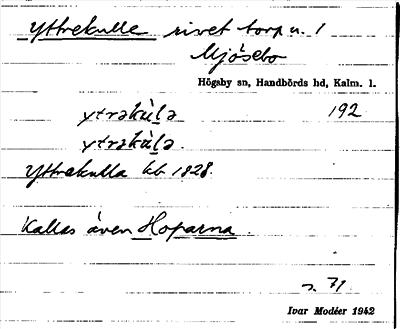 Yttrekulle rivet torp u. 1
Mjösebo
Högsby sn, Handbörds hd, Kalm. l.
ytrəku̇̀lə 192
ytrəku̇̀lə.
Yttrekulla kb 1828.
Kallas även Hoparna.
s. 71
Ivar Modéer 1942